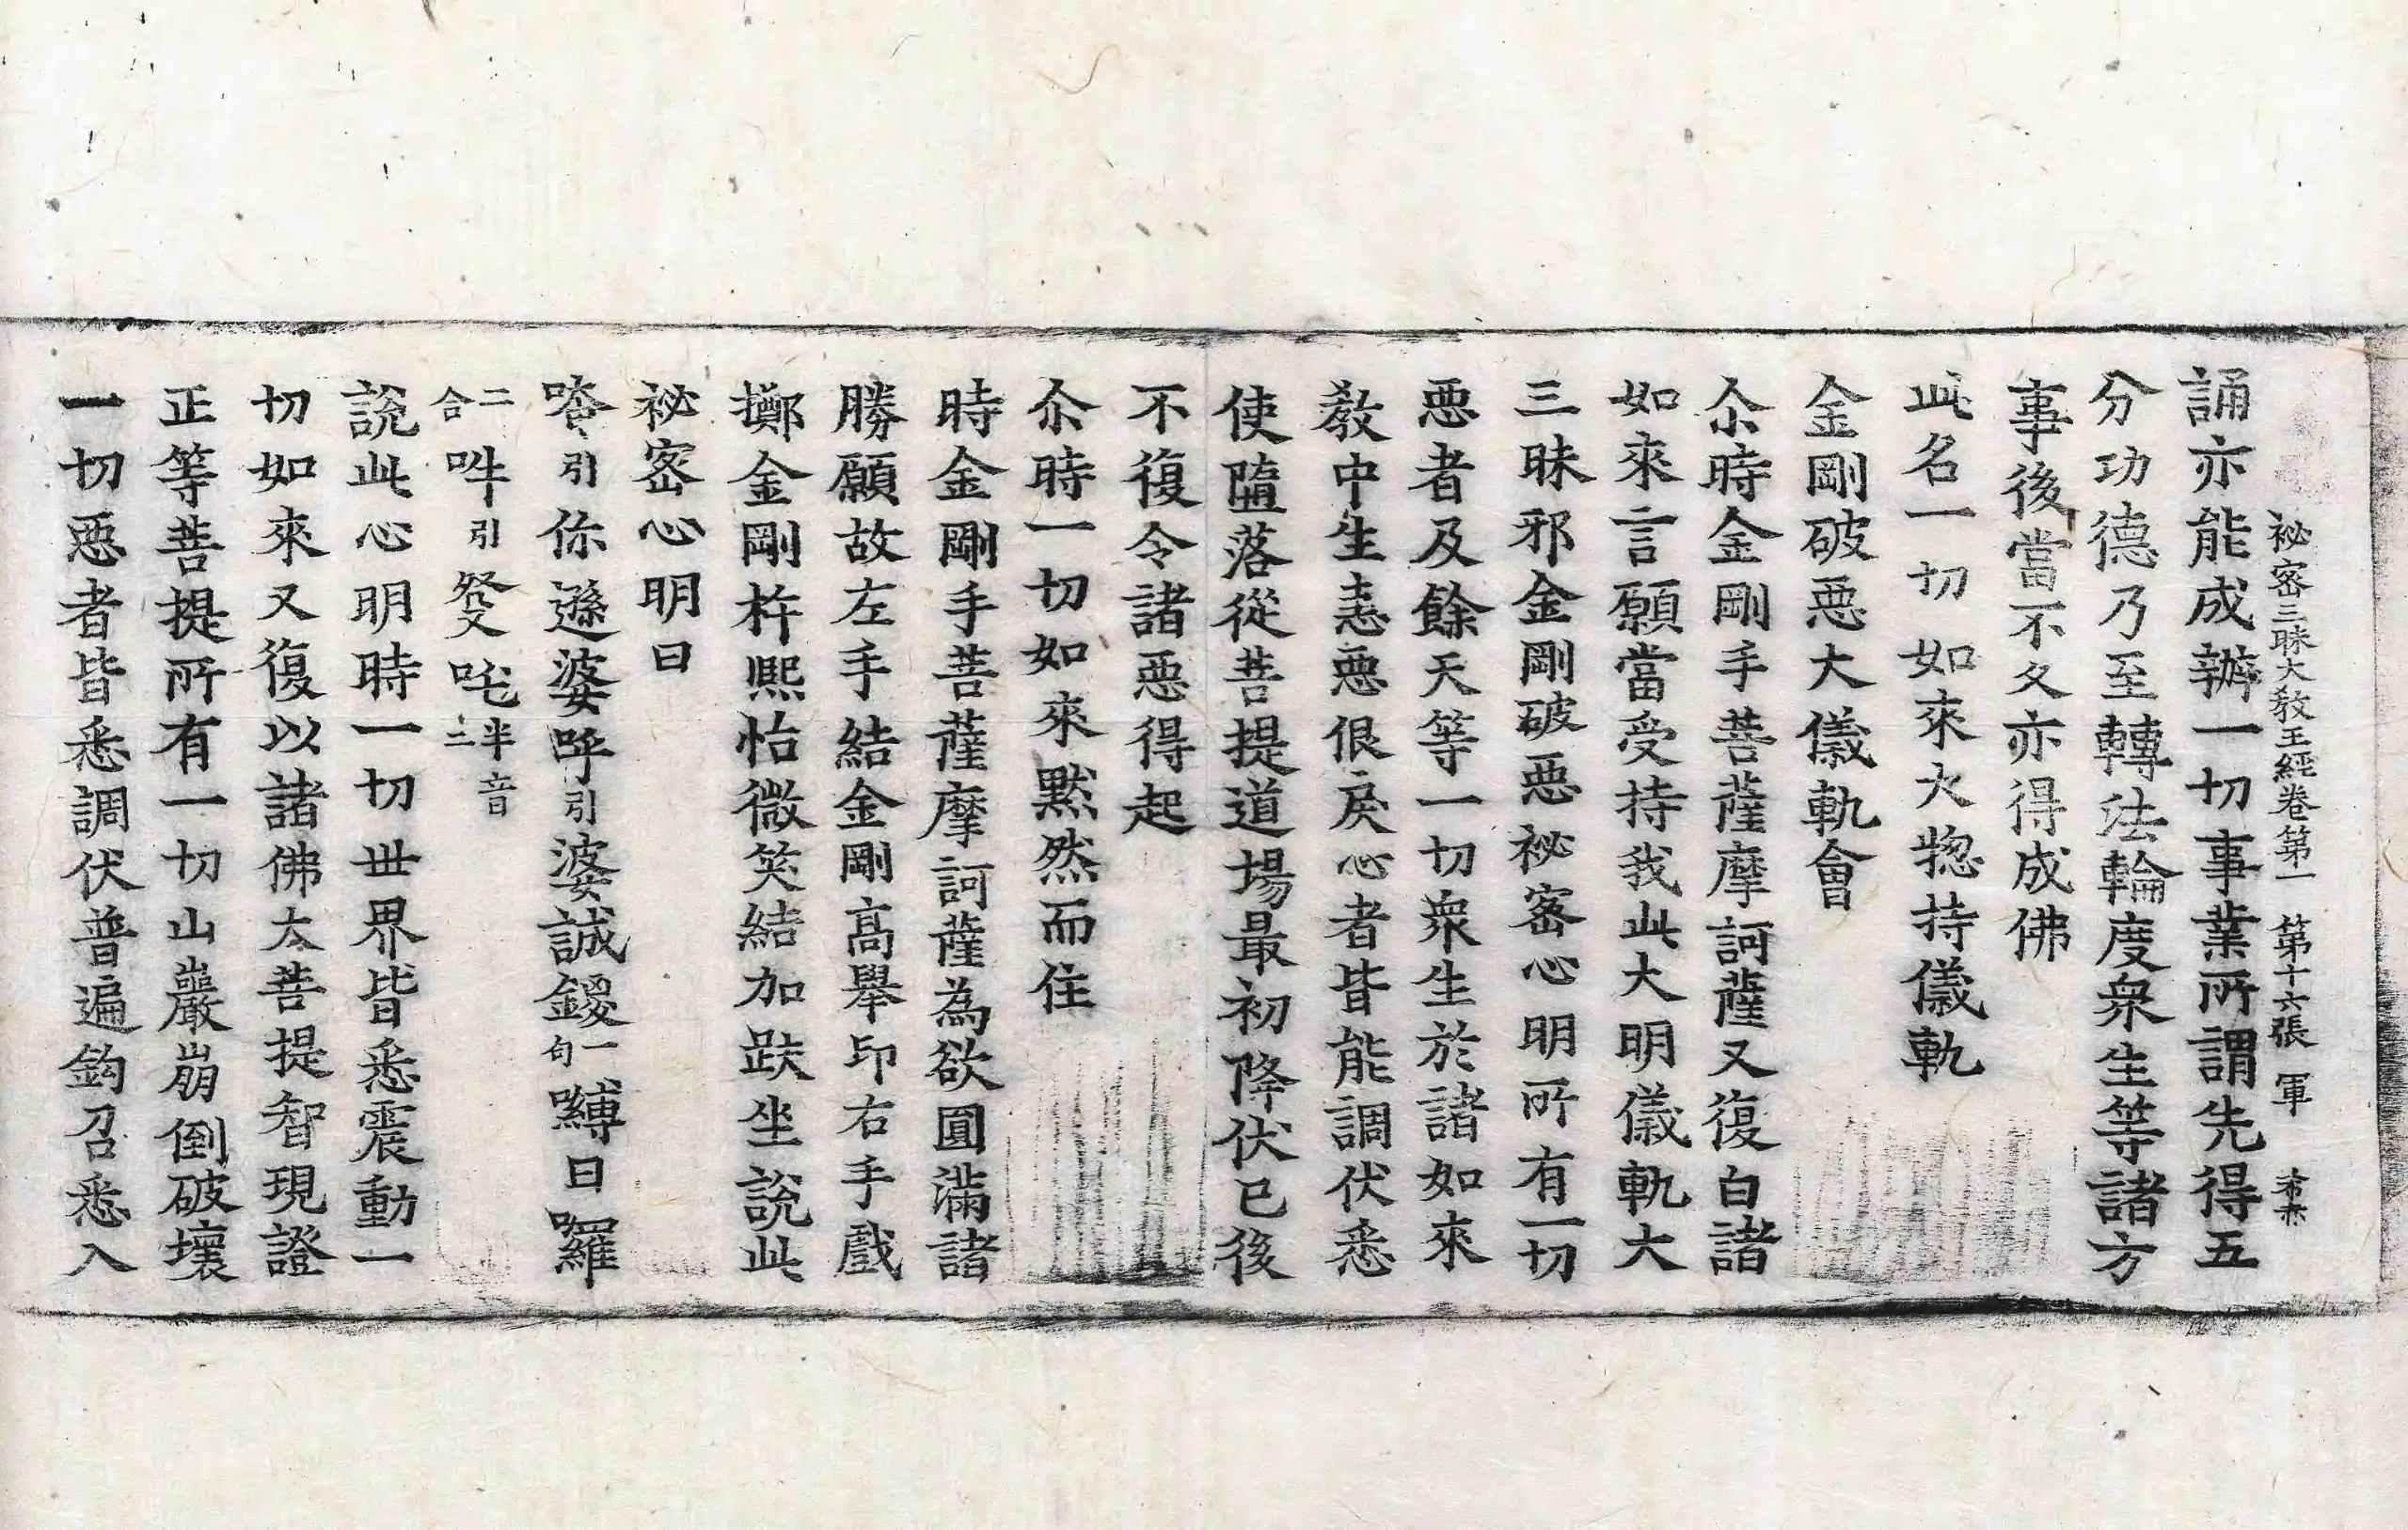 祕密三昧大教王經卷第一 第十六張 軍
誦亦能成辦一切事業所謂先得五
分功德乃至轉法輪度衆生等諸方
事後當不久亦得成佛
此名一切如來大惣持儀軌
金剛破惡大儀軌會
尒時金剛手菩薩摩訶薩又復白諸
如來言願當受持我此大明儀軌大
三昧邪金剛破惡祕密心明所有一切
惡者及餘天等一切衆生於諸如來
教中生恚惡佷戾心者皆能調伏悉
使墮落從菩提道場最初降伏已後
不復令諸惡得起
尒時一切如來默然而住
時金剛手菩薩摩訶薩為欲圓滿諸
勝願故左手結金剛高舉印右手戲
擲金剛杵熙怡微笑結加趺坐說此
祕密心明曰
唵引你遜婆呼引婆誠鍐一句嚩日囉
二合吽引發吒半音二
說此心明時一切世界皆悉震動一
切如來又復以諸佛大菩提智現證
正等菩提所有一切山巖崩倒破壞
一切惡者皆悉調伏普遍鈎召悉入